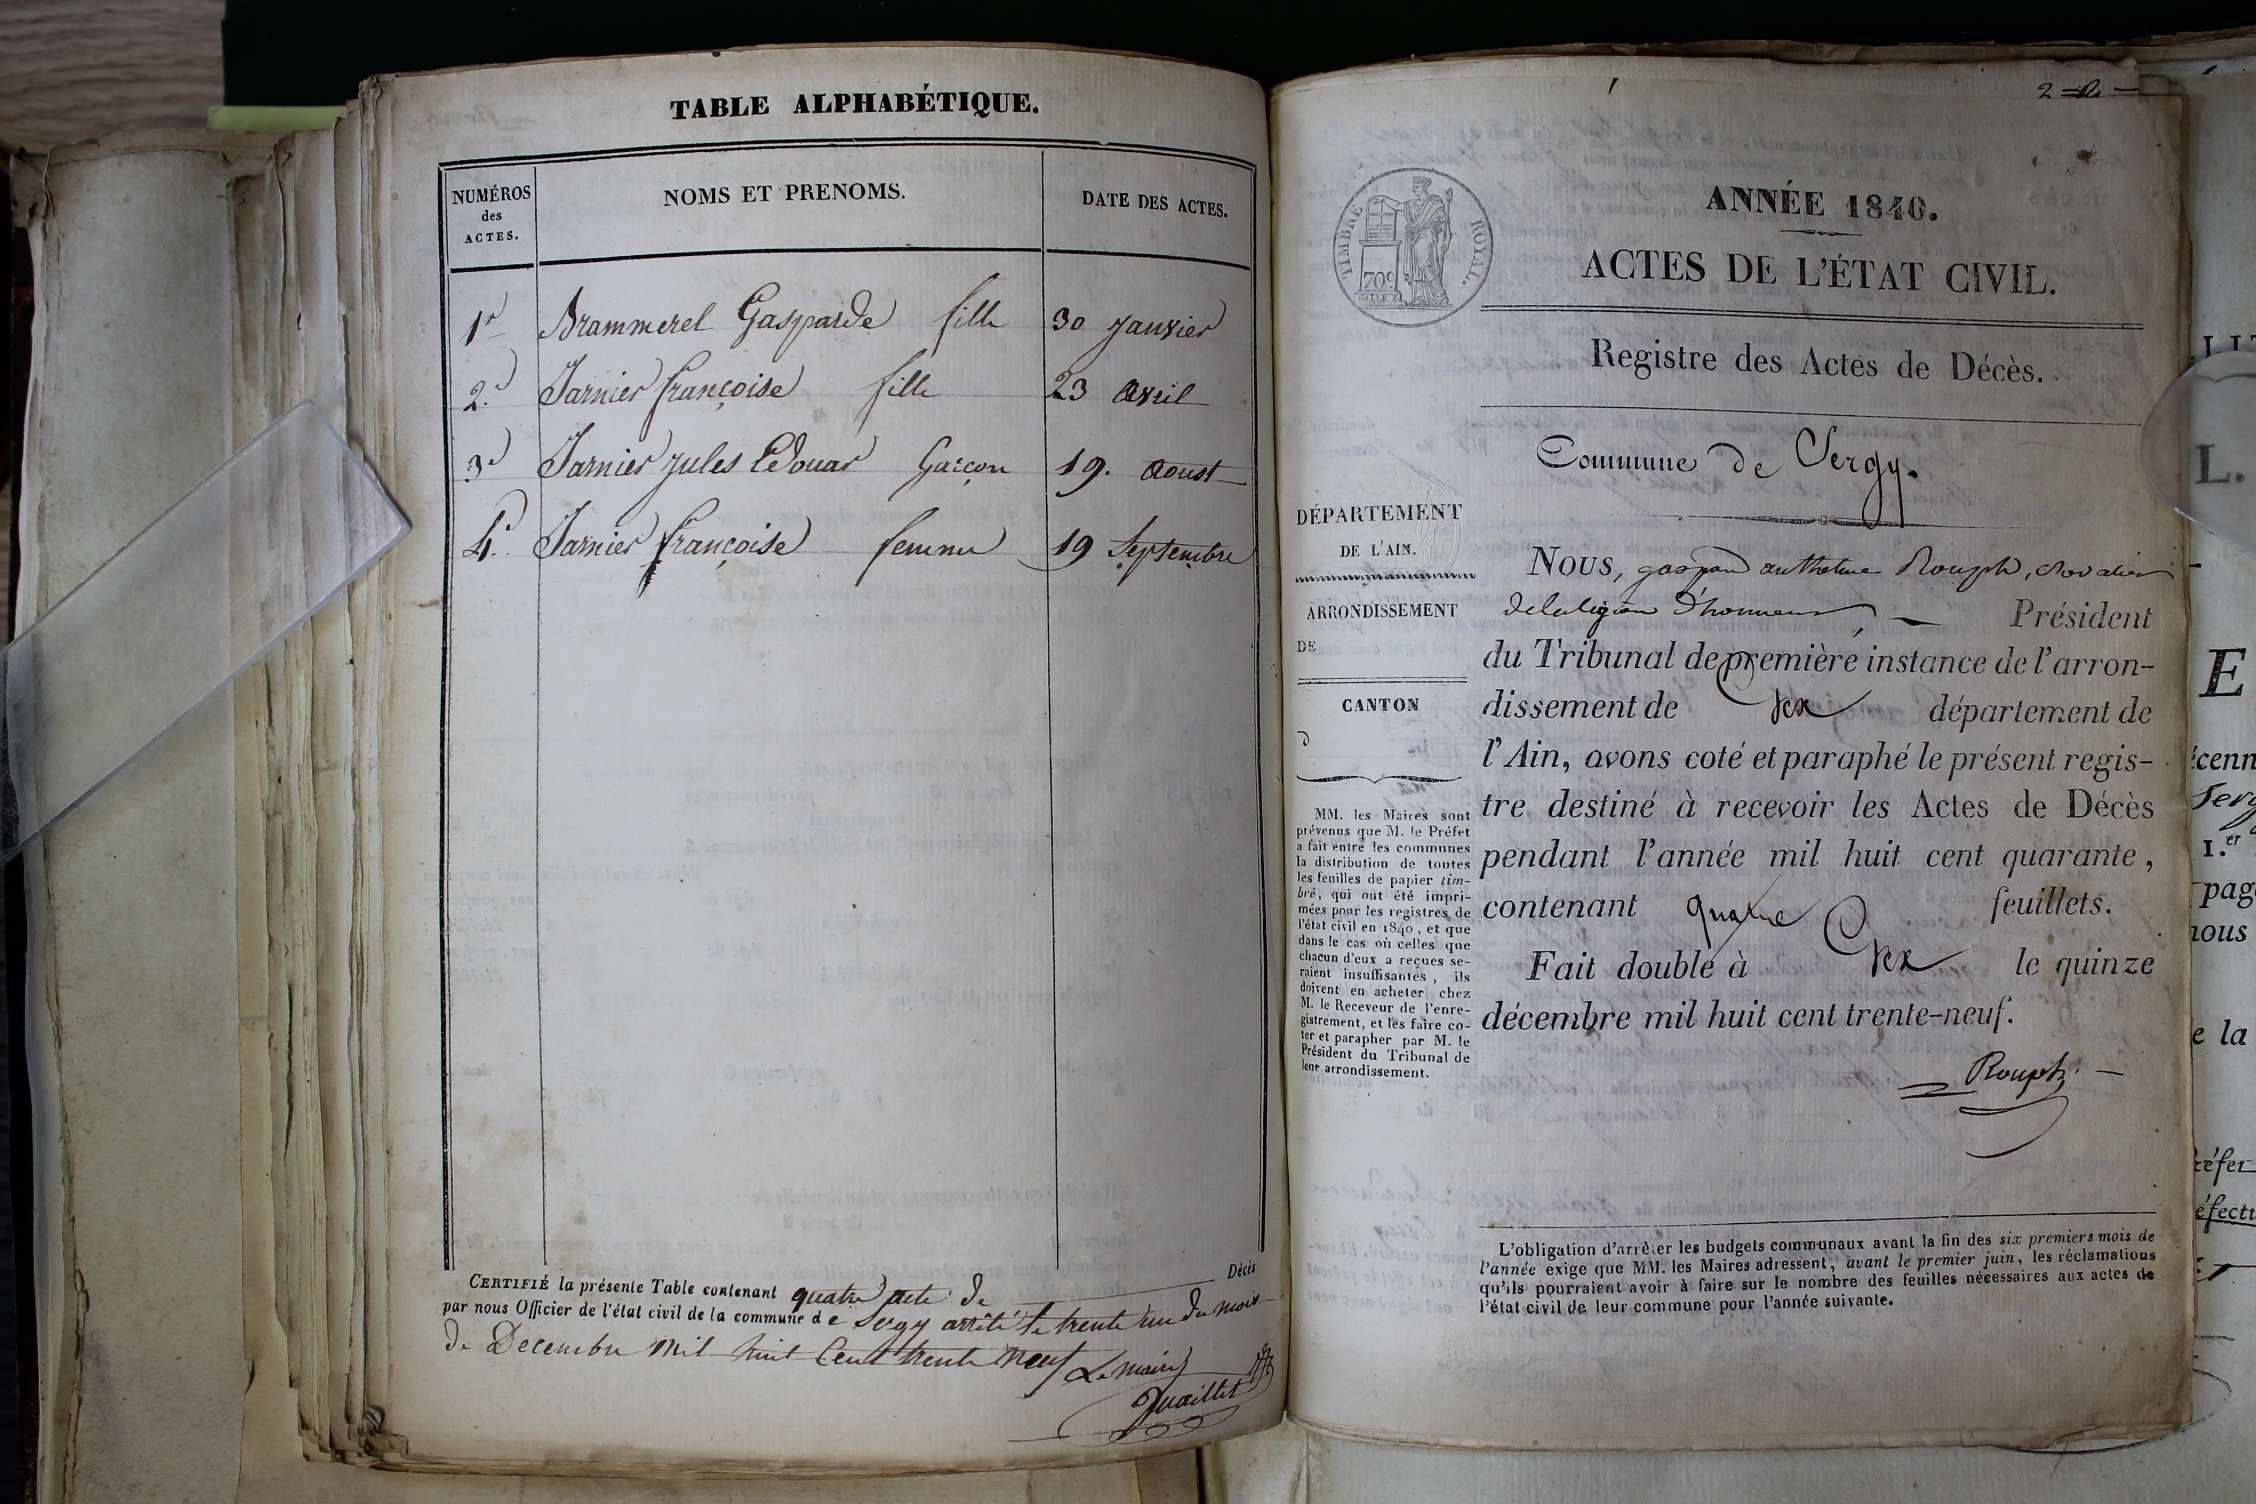 TABLE ALPHABÉTIQUE.
NUMÉROS
des
ACTES.
NOMS ET PRENOMS.
DATE DES ACTES.
1r Brammerel Gasparde fille 30 janvier
2d Jarnier françoise fille 23 avril
3d Jarnier jules Edouar Garçon 19. aoust
4. Jarnier françoise femme 19 Septembre
CERTIFIÉ la présente Table contenant quatre acte de Décès
par nous Officier de l'état civil de la commune de Sergy arrêté le trente un du mois
de Decembre mil huit Cent trente neuf Le maire
Quaillet
2
TIMBRE ROYAL.
70c
ANNÉE 1840.
ACTES DE L'ÉTAT CIVIL.
Registre des Actes de Décès.
Commune de Sergy.
DÉPARTEMENT
DE L'AIN.
ARRONDISSEMENT
DE
CANTON
d
MM. les Maires sont
prévenus que M. le Préfet
a fait entre les communes
la distribution de toutes
les feuilles de papier tim-
bré, qui ont été impri-
mées pour les registres de
l'état civil en 1840, et que
dans le cas où celles que
chacun d'eux a reçues se-
raient insuffisantes, ils
doivent en acheter chez
M. le Receveur de l'enre-
gistrement, et les faire co-
ter et parapher par M. le
Président du Tribunal de
leur arrondissement.
NOUS, gaspard anthelme Rouph, chevalier
de la légion d'honneur, Président
du Tribunal de première instance de l'arron-
dissement de Gex département de
l'Ain, avons coté et paraphé le présent regis-
tre destiné à recevoir les Actes de Décès
pendant l'année mil huit cent quarante,
contenant quatre feuillets.
Fait double à Gex le quinze
décembre mil huit cent trente-neuf.
Rouph
L'obligation d'arrêter les budgets communaux avant la fin des six premiers mois de
l'année exige que MM. les Maires adressent, avant le premier juin, les réclamations
qu'ils pourraient avoir à faire sur le nombre des feuilles nécessaires aux actes de
l'état civil de leur commune pour l'année suivante.
L.
E
écenn
Serg
1.er
page
nous
e la
réfet
éfectu